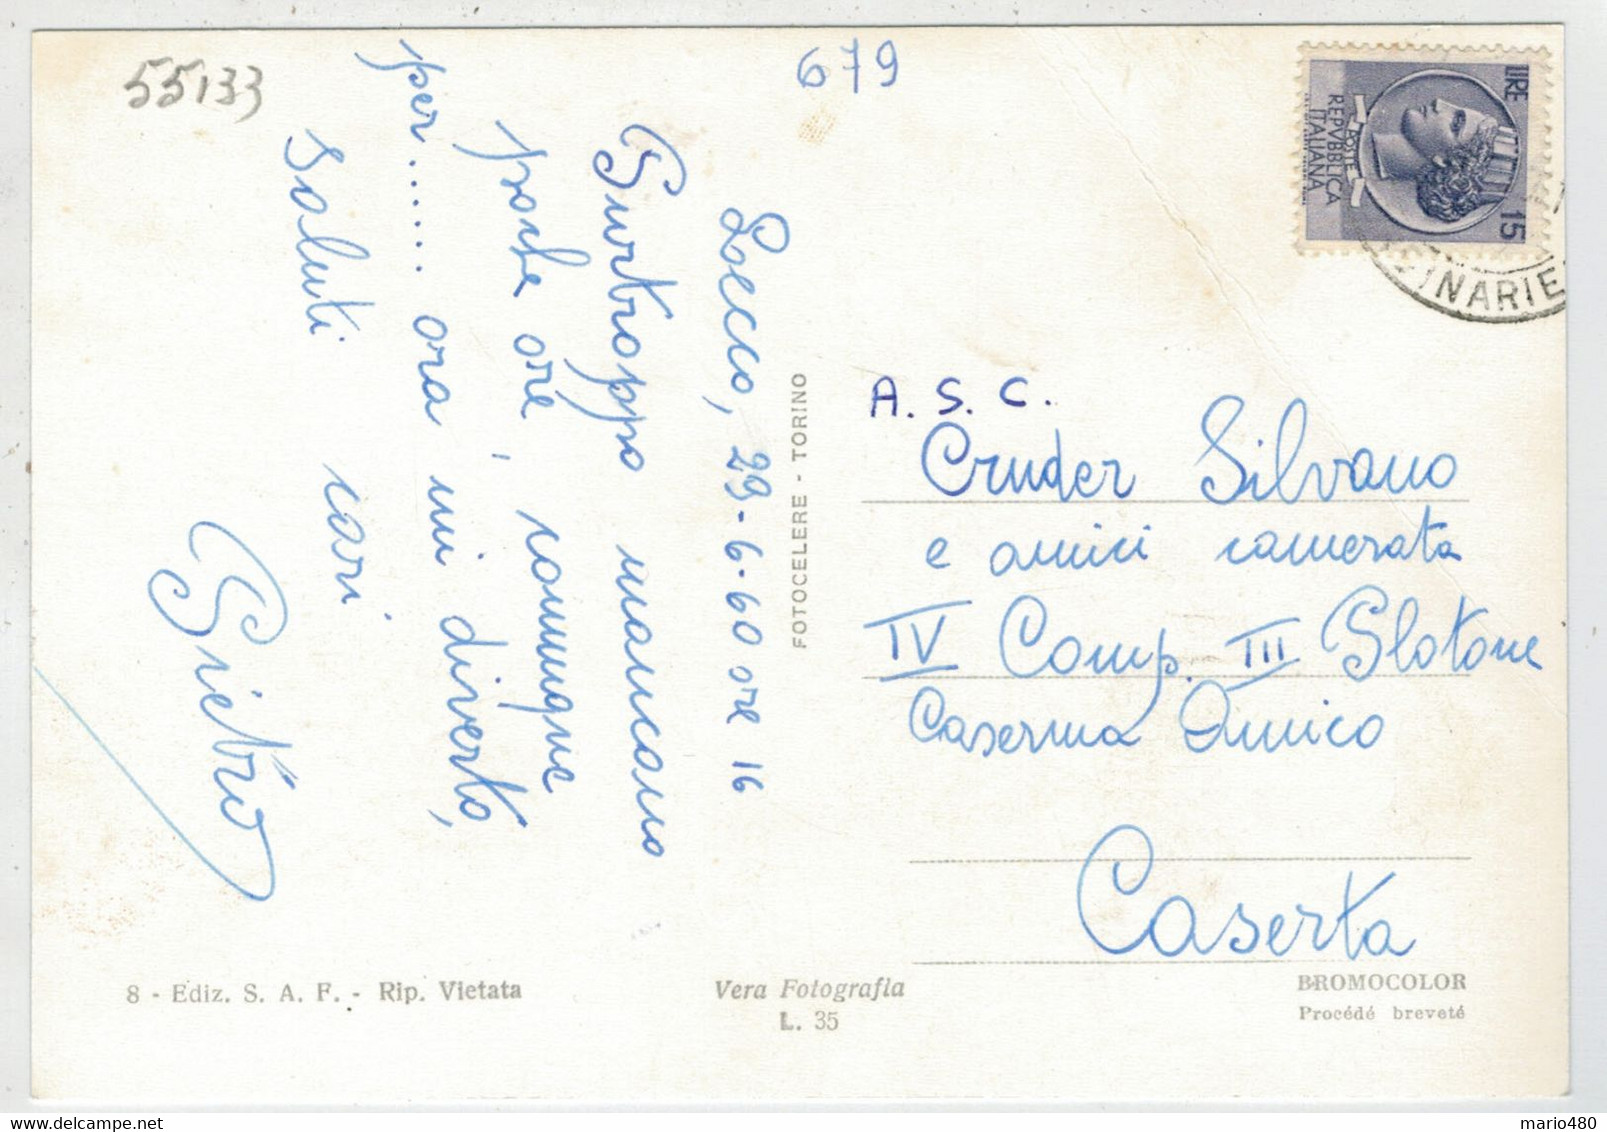 55133
679
LIRE 15
POSTE
REPVBBLICA
ITALIANA
INARIE
Lecco, 29-6-60 ore 16
Purtroppo mancano
poche ore, comunque
per...... ora mi diverto,
saluti cari
Pietro
FOTOCELERE - TORINO
A. S. C.
Cruder Silvano
e amici camerata
IV Comp. III Plotone
Caserma Amico
Caserta
8 - Ediz. S. A. F. - Rip. Vietata
Vera Fotografia
L. 35
BROMOCOLOR
Procédé breveté
mario480